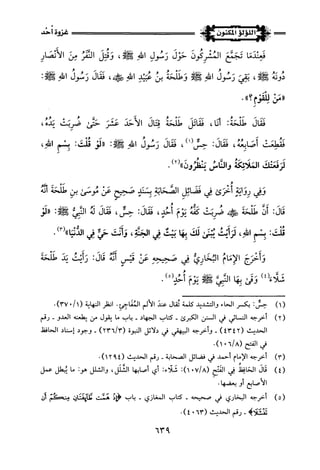 اللؤلؤ المكنون
غزوة أحد
فَعِنْدَمَا تَجَمَّعَ الْمُشْرِكُونَ حَوْلَ رَسُولِ اللهِ ﷺ، وَقُتِلَ النَّفَرُ مِنَ الْأَنْصَارِ
دُونَهُ ﷺ، بَقِيَ رَسُولُ اللهِ ﷺ وَطَلْحَةُ بنُ عُبَيْدِ اللهِ ﷺ، فَقَالَ رَسُولُ اللهِ ﷺ:
«مَنْ لِلْقَوْمِ؟».
فَقَالَ طَلْحَةُ: أَنَا، فَقَاتَلَ طَلْحَةُ قِتَالَ الْأَحَدَ عَشَرَ حَتَّى ضُرِبَتْ يَدُهُ،
فَقُطِعَتْ أَصَابِعُهُ، فَقَالَ: حِسِّ(١)، فَقَالَ رَسُولُ اللهِ ﷺ: «لَوْ قُلْتَ: بِسْمِ اللهِ،
لَرَفَعَتْكَ الْمَلَائِكَةُ وَالنَّاسُ يَنْظُرُونَ»(٢).
وَفِي رِوَايَةٍ أُخْرَى فِي فَضَائِلِ الصَّحَابَةِ بِسَنَدٍ صَحِيحٍ عَنْ مُوسَى بنِ طَلْحَةَ أَنَّهُ
قَالَ: أَنَّ طَلْحَةَ ضُرِبَتْ كَفُّهُ يَوْمَ أُحُدٍ، فَقَالَ: حِسِّ، فَقَالَ لَهُ النَّبِيُّ ﷺ: «لَوْ
قُلْتَ: بِسْمِ اللهِ، لَرَأَيْتَ يُبْنَى لَكَ بِهَا بَيْتٌ فِي الْجَنَّةِ، وَأَنْتَ حَيٌّ فِي الدُّنْيَا»(٣).
وَأَخْرَجَ الْإِمَامُ الْبُخَارِيُّ فِي صَحِيحِهِ عَنْ قَيْسٍ أَنَّهُ قَالَ: رَأَيْتُ يَدَ طَلْحَةَ
شَلَّاءَ(٤) وَقَى بِهَا النَّبِيَّ ﷺ يَوْمَ أُحُدٍ(٥).
(١) حِسِّ: بكسر الحاء والتشديد كلمة تُقال عندَ الألم المُفاجِئ. انظر النهاية (٣٧٠/١).
(٢) أخرجه النسائي في السنن الكبرى - كتاب الجهاد - باب ما يقول من يطعنه العدو - رقم
الحديث (٤٣٤٢) - وأخرجه البيهقي في دلائل النبوة (٢٣٦/٣) - وجود إسناده الحافظ
في الفتح (١٠٦/٨).
(٣) أخرجه الإمام أحمد في فضائل الصحابة - رقم الحديث (١٢٩٤).
(٤) قَالَ الحَافِظُ فِي الفَتْحِ (١٠٧/٨): شَلَّاء: أي أصابها الشَّلَل، والشلل هو: ما يُبطل عمل
الأصابع أو بعضها.
(٥) أخرجه البخاري في صحيحه - كتاب المغازي - باب ﴿إِذْ هَمَّت طَّآئِفَتَانِ مِنكُمْ أَن
تَفْشَلَا﴾ - رقم الحديث (٤٠٦٣).
٦٣٩